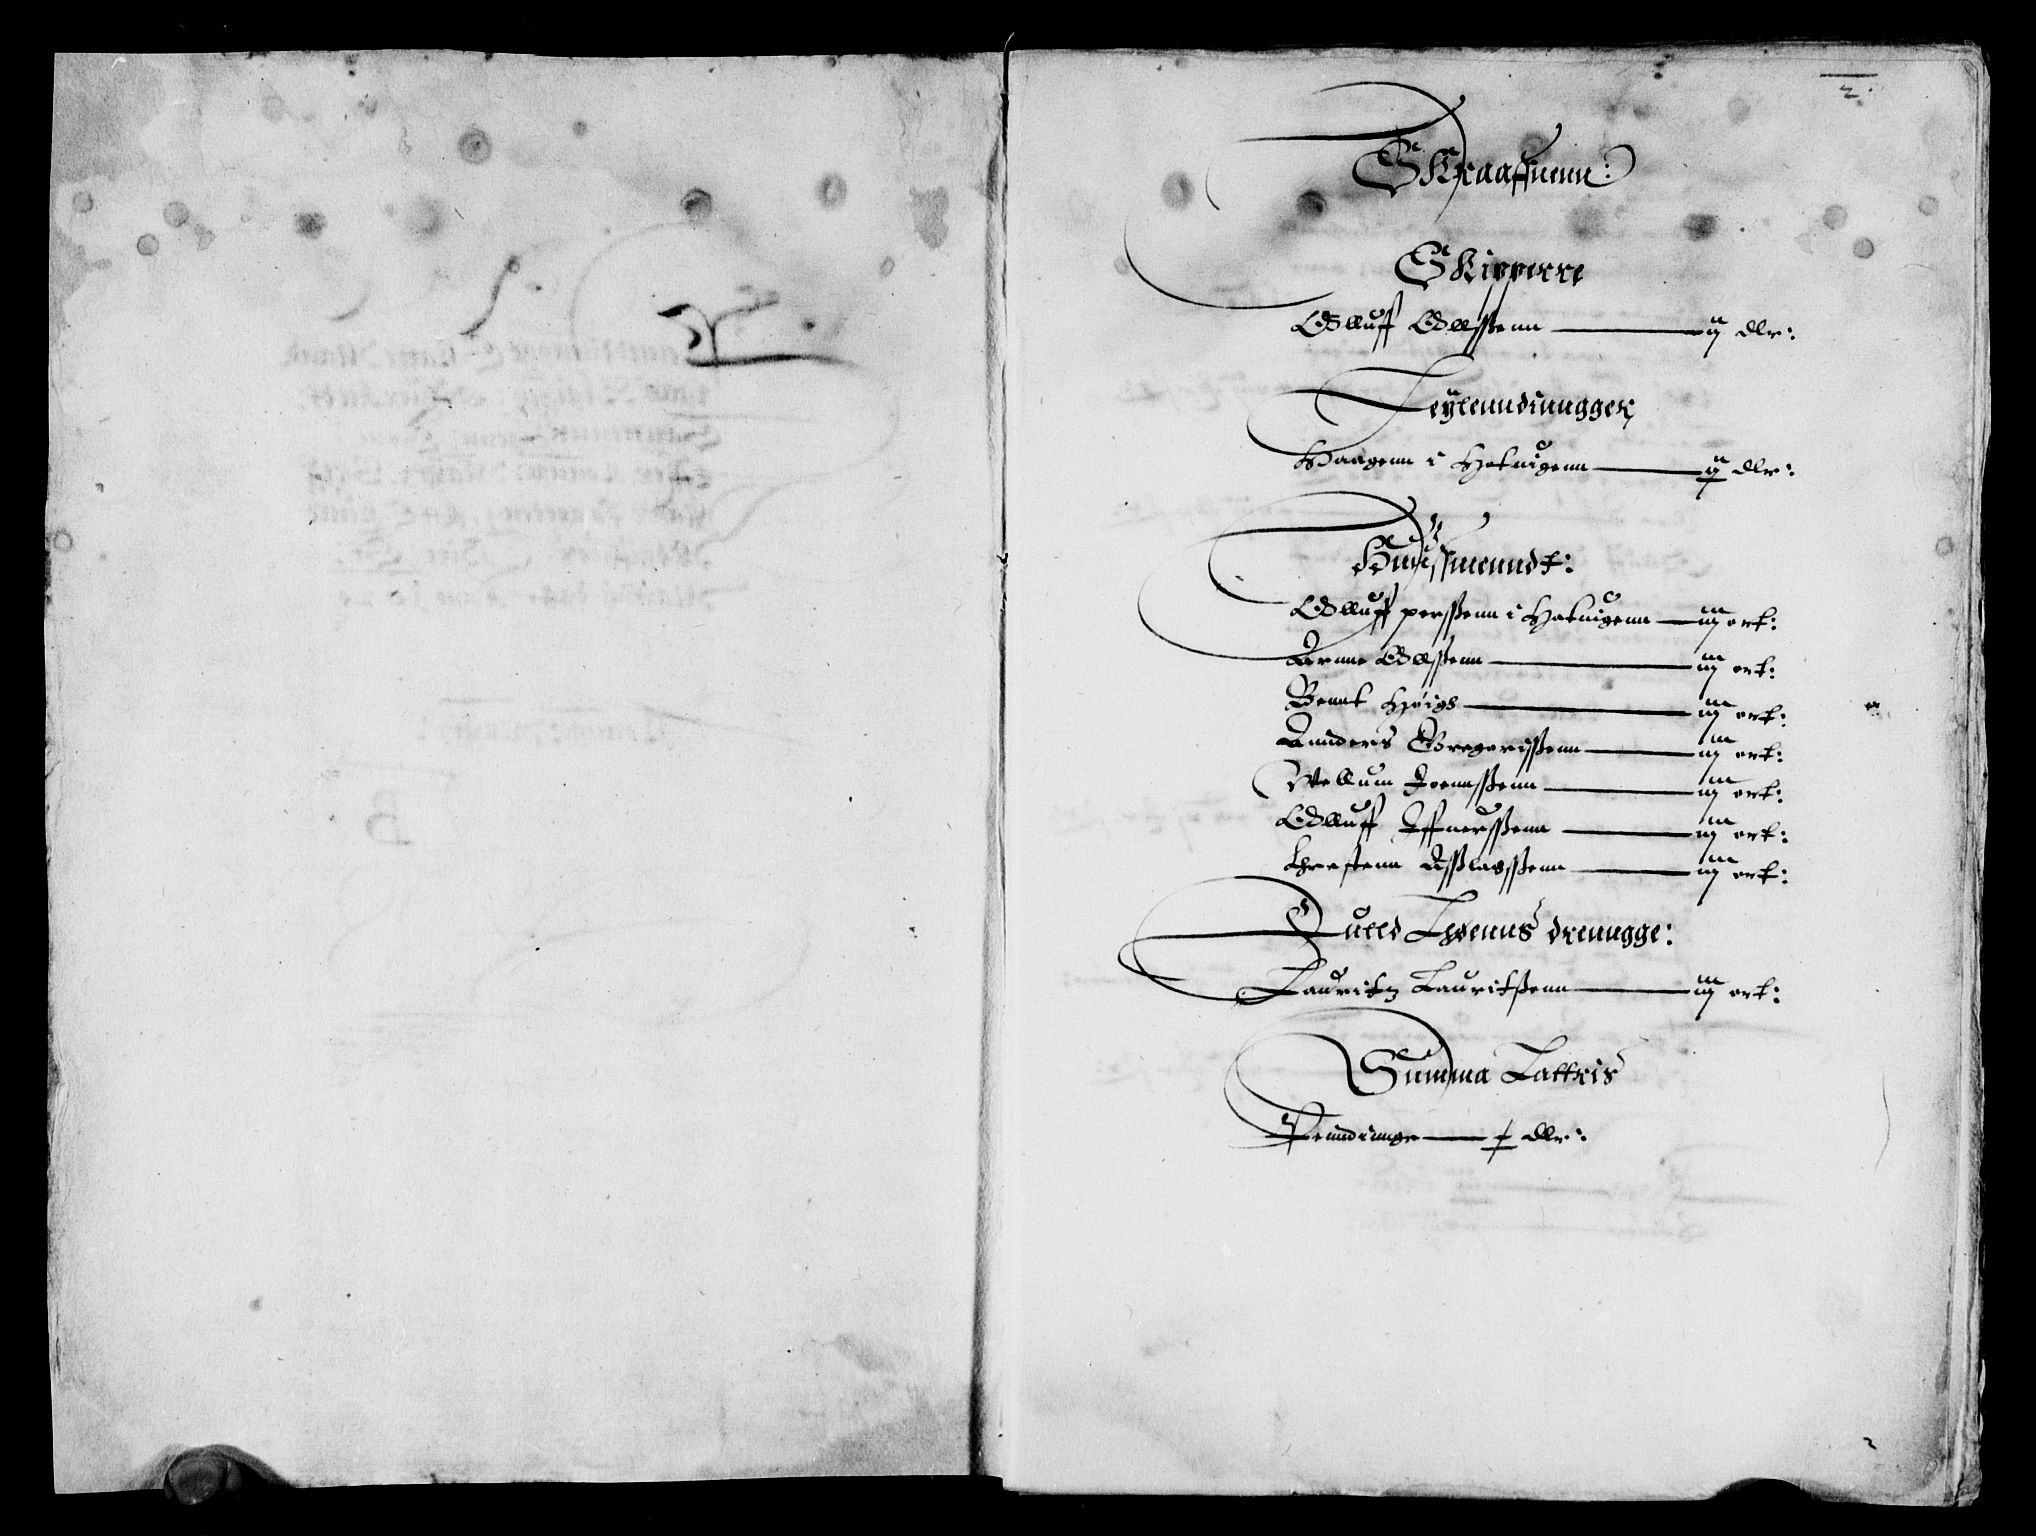 2.
Skraaffuenn:
Skipperre
Olluff Ollssenn — ij dlr:
Leylenndinngger
Haagenn i Hatuigenn — ij dlr:
Huussmenndt:
Olluff perssenn i Hatuigenn — iij ort:
Arnne Ollssenn — iij ort:
Bennt Høigs — iij ort:
Anders Gregerissenn — iij ort:
Vellum Joennssenn — iij ort:
Olluff Iffuerssenn — iij ort:
Chrestenn Asslagssenn — iij ort:
Fulld Løenns drenngge:
Lauritz Lauritssenn — iij ort:
Summa Lattris
Penndinge — x dlr: